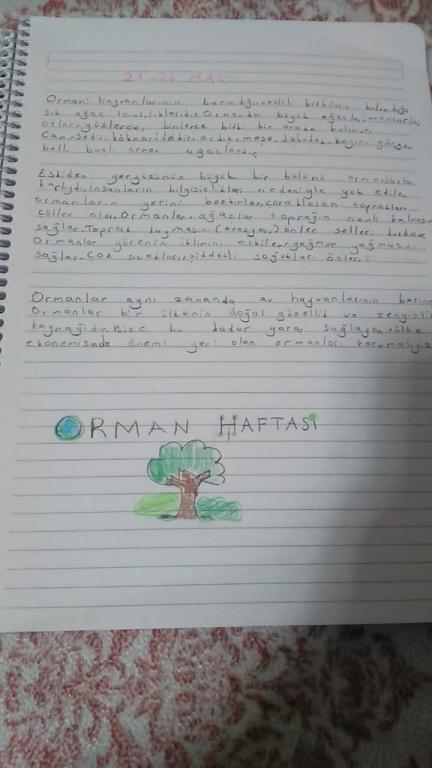 21-26 MAR
Orman: hayvanlarının barındığı çeşitli bitkilerin bulunduğu
sık ağaç topluluklarıdır. Ormanda büyük ağaçlar, mantarlar,
otlar, yüzlerce, binlerce bitki bir arada bulunur.
Çam, sedir, köknar, ladin, ardıç, meşe, kayın, gürgen
belli başlı orman ağaçlarıdır.
Eskiden yeryüzünün büyük bir bölümü ormanlarla
kaplıydı. İnsanların bilgisizlikleri nedeniyle yok edilen
ormanların yerini bozkırlar, çoraklaşan topraklar,
çöller aldı. Ormanlar, ağaçlar toprağın nemli kalmasını
sağlar. Toprak kaymasını (erozyonu) önler selleri durdurur.
Ormanlar yörenin iklimini etkiler, yağmur yağmasını
sağlar. Çok sıcakları, şiddetli soğukları önler.
Ormanlar aynı zamanda av hayvanlarının
Ormanlar bir ülkenin doğal güzellik ve zenginlik
kaynağıdır. Bize bu kadar yarar sağlayan, ülke
ekonomisinde önemli yeri olan ormanları korumalıyız
ORMAN HAFTASI